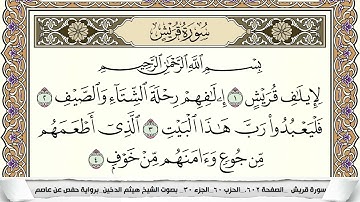 سورة قريش
بسم الله الرحمن الرحيم
لِإِيلَٰفِ قُرَيْشٍ ١ إِۦلَٰفِهِمْ رِحْلَةَ ٱلشِّتَآءِ وَٱلصَّيْفِ ٢
فَلْيَعْبُدُوا۟ رَبَّ هَٰذَا ٱلْبَيْتِ ٣ ٱلَّذِىٓ أَطْعَمَهُم
مِّن جُوعٍ وَءَامَنَهُم مِّنْ خَوْفٍۭ ٤
سورة قريش _ الصفحة ٦٠٢ _ الحزب ٦٠ _ الجزء ٣٠ _ بصوت الشيخ هيثم الدخين _ برواية حفص عن عاصم